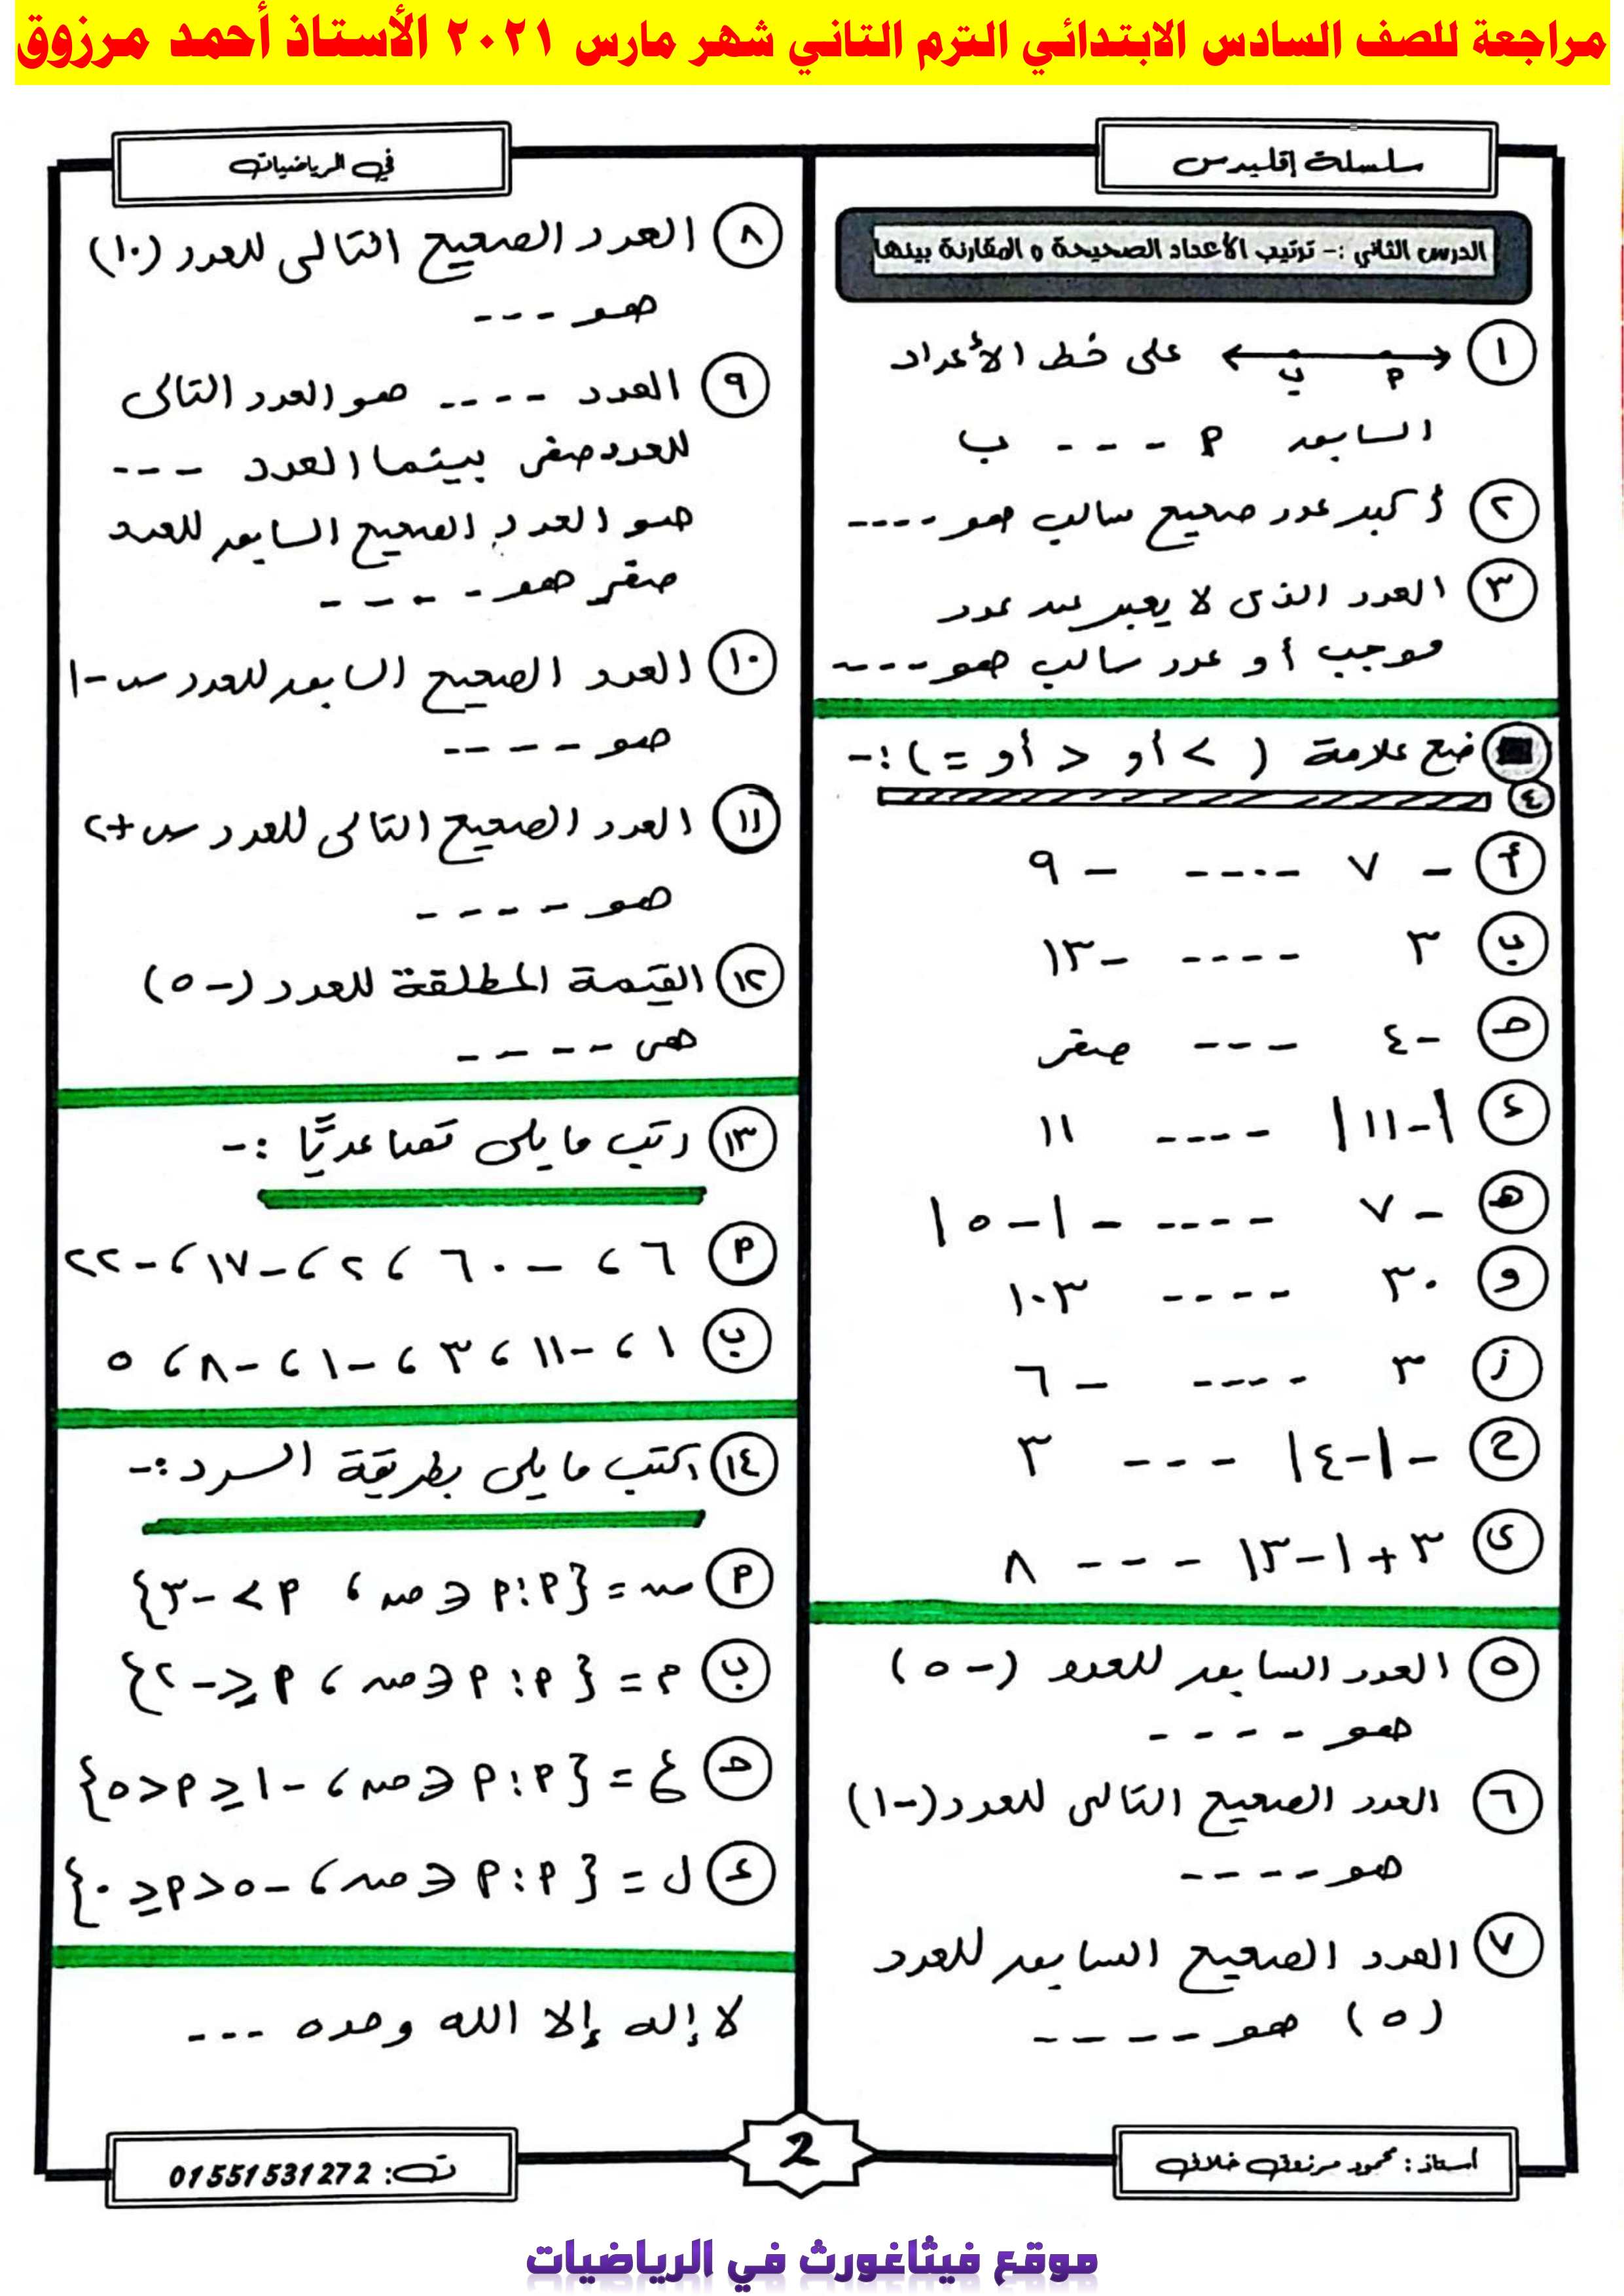 مراجعة للصف السادس الابتدائي الترم الثاني شهر مارس ٢٠٢١ الأستاذ أحمد مرزوق
سلسلة إقليدس
الدرس الثاني :- ترتيب الأعداد الصحيحة و المقارنة بينها
١ على خط الأعداد
ب م
السابق م --- ب
٢ أكبر عدد صحيح سالب هو ----
٣ العدد الذى لا يعبر عن عدد
موجب أو عدد سالب هو ----
ضع علامة ( > أو < أو = ) :-
٤
أ - ٧ ---- - ٩
ب ٣ ---- -١٣
حـ -٤ --- صفر
ء |-١١| ---- ١١
هـ - ٧ ---- -|-٥|
و ٣٠ ---- ١٠٣
ز ٣ ---- - ٦
ح -|-٤| --- ٣
ى ٣ + |-٣| --- ٨
٥ العدد السابق للعدد (-٥)
هو ----
٦ العدد الصحيح التالى للعدد (-١)
هو ----
٧ العدد الصحيح السابق للعدد
(٥) هو ----
في الرياضيات
٨ العدد الصحيح التالى للعدد (١٠)
هو ---
٩ العدد ---- هو العدد التالى
للعدد صفر بينما العدد ---
هو العدد الصحيح السابق للعدد
صفر هو ----
١٠ العدد الصحيح السابق للعدد س-١
هو ----
١١ العدد الصحيح التالى للعدد س+٢
هو ----
١٢ القيمة المطلقة للعدد (-٥)
هى ----
١٣ رتب ما يلى تصاعديًا :-
م ٦ ، -٦٠ ، ٢ ، -١٧ ، -٢٢
ب ١ ، -١١ ، ٣ ، -١ ، -٨ ، ٥
١٤ اكتب ما يلى بطريقة السرد :-
م س = {م : م ∈ ص ، م > -٣}
ب م = {م : م ∈ ص ، م ≤ -٢}
حـ ع = {م : م ∈ ص ، -١ ≤ م < ٥}
ء ل = {م : م ∈ ص ، -٥ < م ≤ ٠}
لا إله إلا الله وحده ---
أستاذ : محمود مرزوق خلاف
2
ت: 01551531272
موقع فيثاغورث في الرياضيات